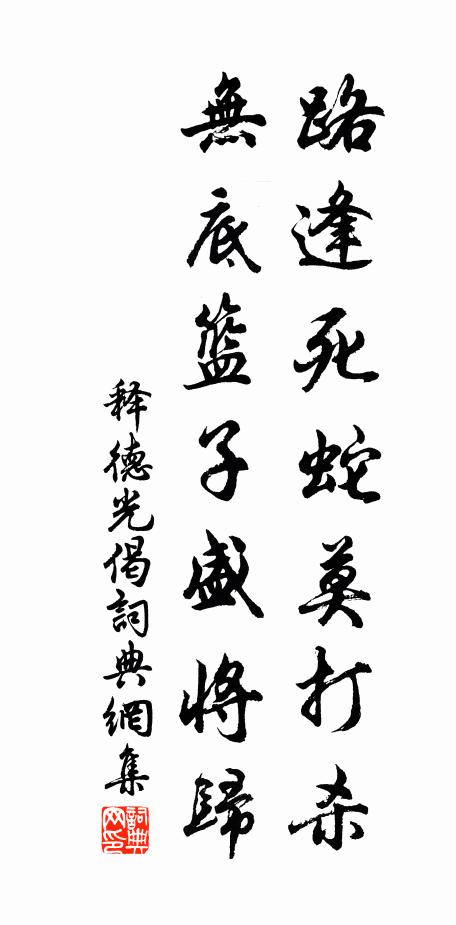 路逢死蛇莫打杀
無底籃子盛將歸
释德光偈詞典網集
詞典网印